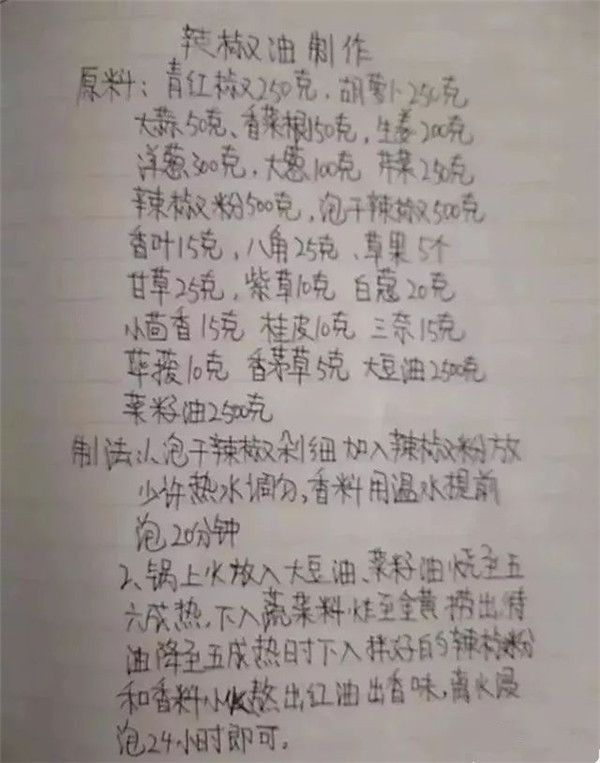 辣椒油制作
原料：青红椒250克，胡萝卜250克
大蒜50克、香菜根150克，生姜200克
洋葱300克，大葱100克 芹菜250克
辣椒粉500克，泡干辣椒500克
香叶15克，八角25克、草果5个
甘草25克，紫草10克 白蔻20克
小茴香15克 桂皮10克 三奈15克
荜拨10克 香茅草5克 大豆油2500克
菜籽油2500克
制法：1、泡干辣椒剁细加入辣椒粉放
少许热水调匀，香料用温水提前
泡20分钟
2、锅上火放入大豆油、菜籽油烧至五
六成热，下入蔬菜料炸至金黄捞出待
油降至五成热时下入拌好的辣椒粉
和香料小火熬出红油出香味，离火浸
泡24小时即可。